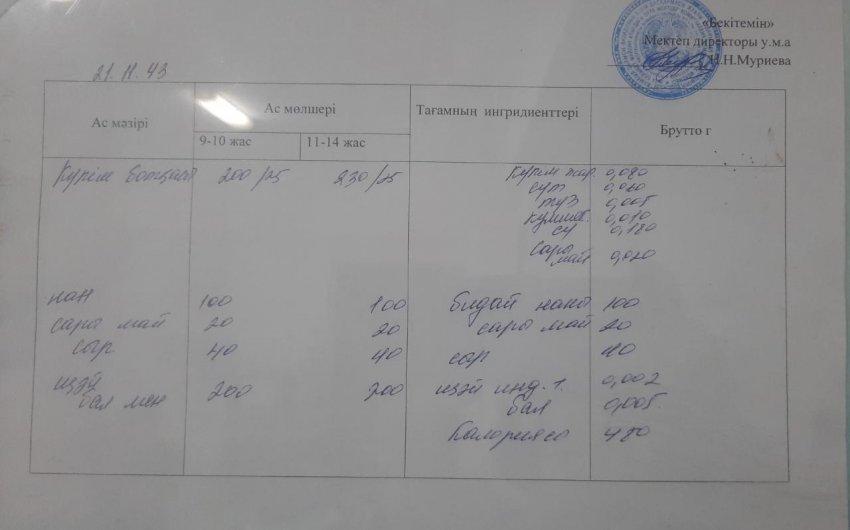 «Бекітемін»
Мектеп директоры у.м.а
Н.Н.Муриева
21. 11. 43
Ас мәзірі
Ас мөлшері
9-10 жас 11-14 жас
Тағамның ингридиенттері
Брутто г
Күріш ботқасы 200/25 230/25 күріш 0,080
сүт 0,060
тұз 0,005
0,010
су 0,180
Сары май 0,020
нан 100 100 бидай наны 100
сары май 20 20 сары май 20
сыр 40 40 сыр 40
шәй бал мен 200 200 шәй инд. 1. 0,002
бал 0,005
Калориясы 480